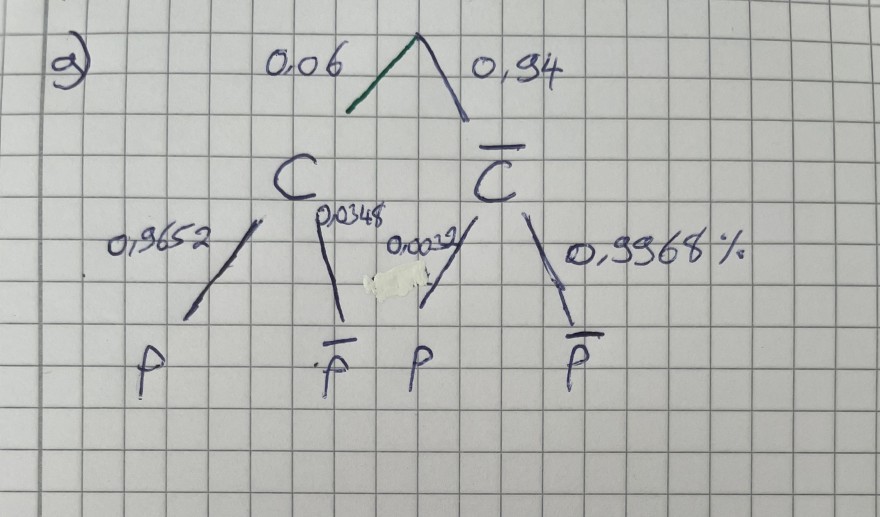 a)
0,06 0,94
C C̅
0,9652 0,0348 0,0032 0,9968 %
P P̅ P P̅